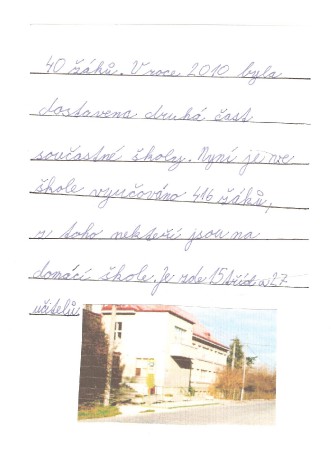 40 žáků. V roce 2010 byla
dostavena druhá část
součastné školy. Nyní je ve
škole vyučováno 416 žáků,
z toho nekteří jsou na
domácí škole. Je zde 15 tříd a 27
učitelů